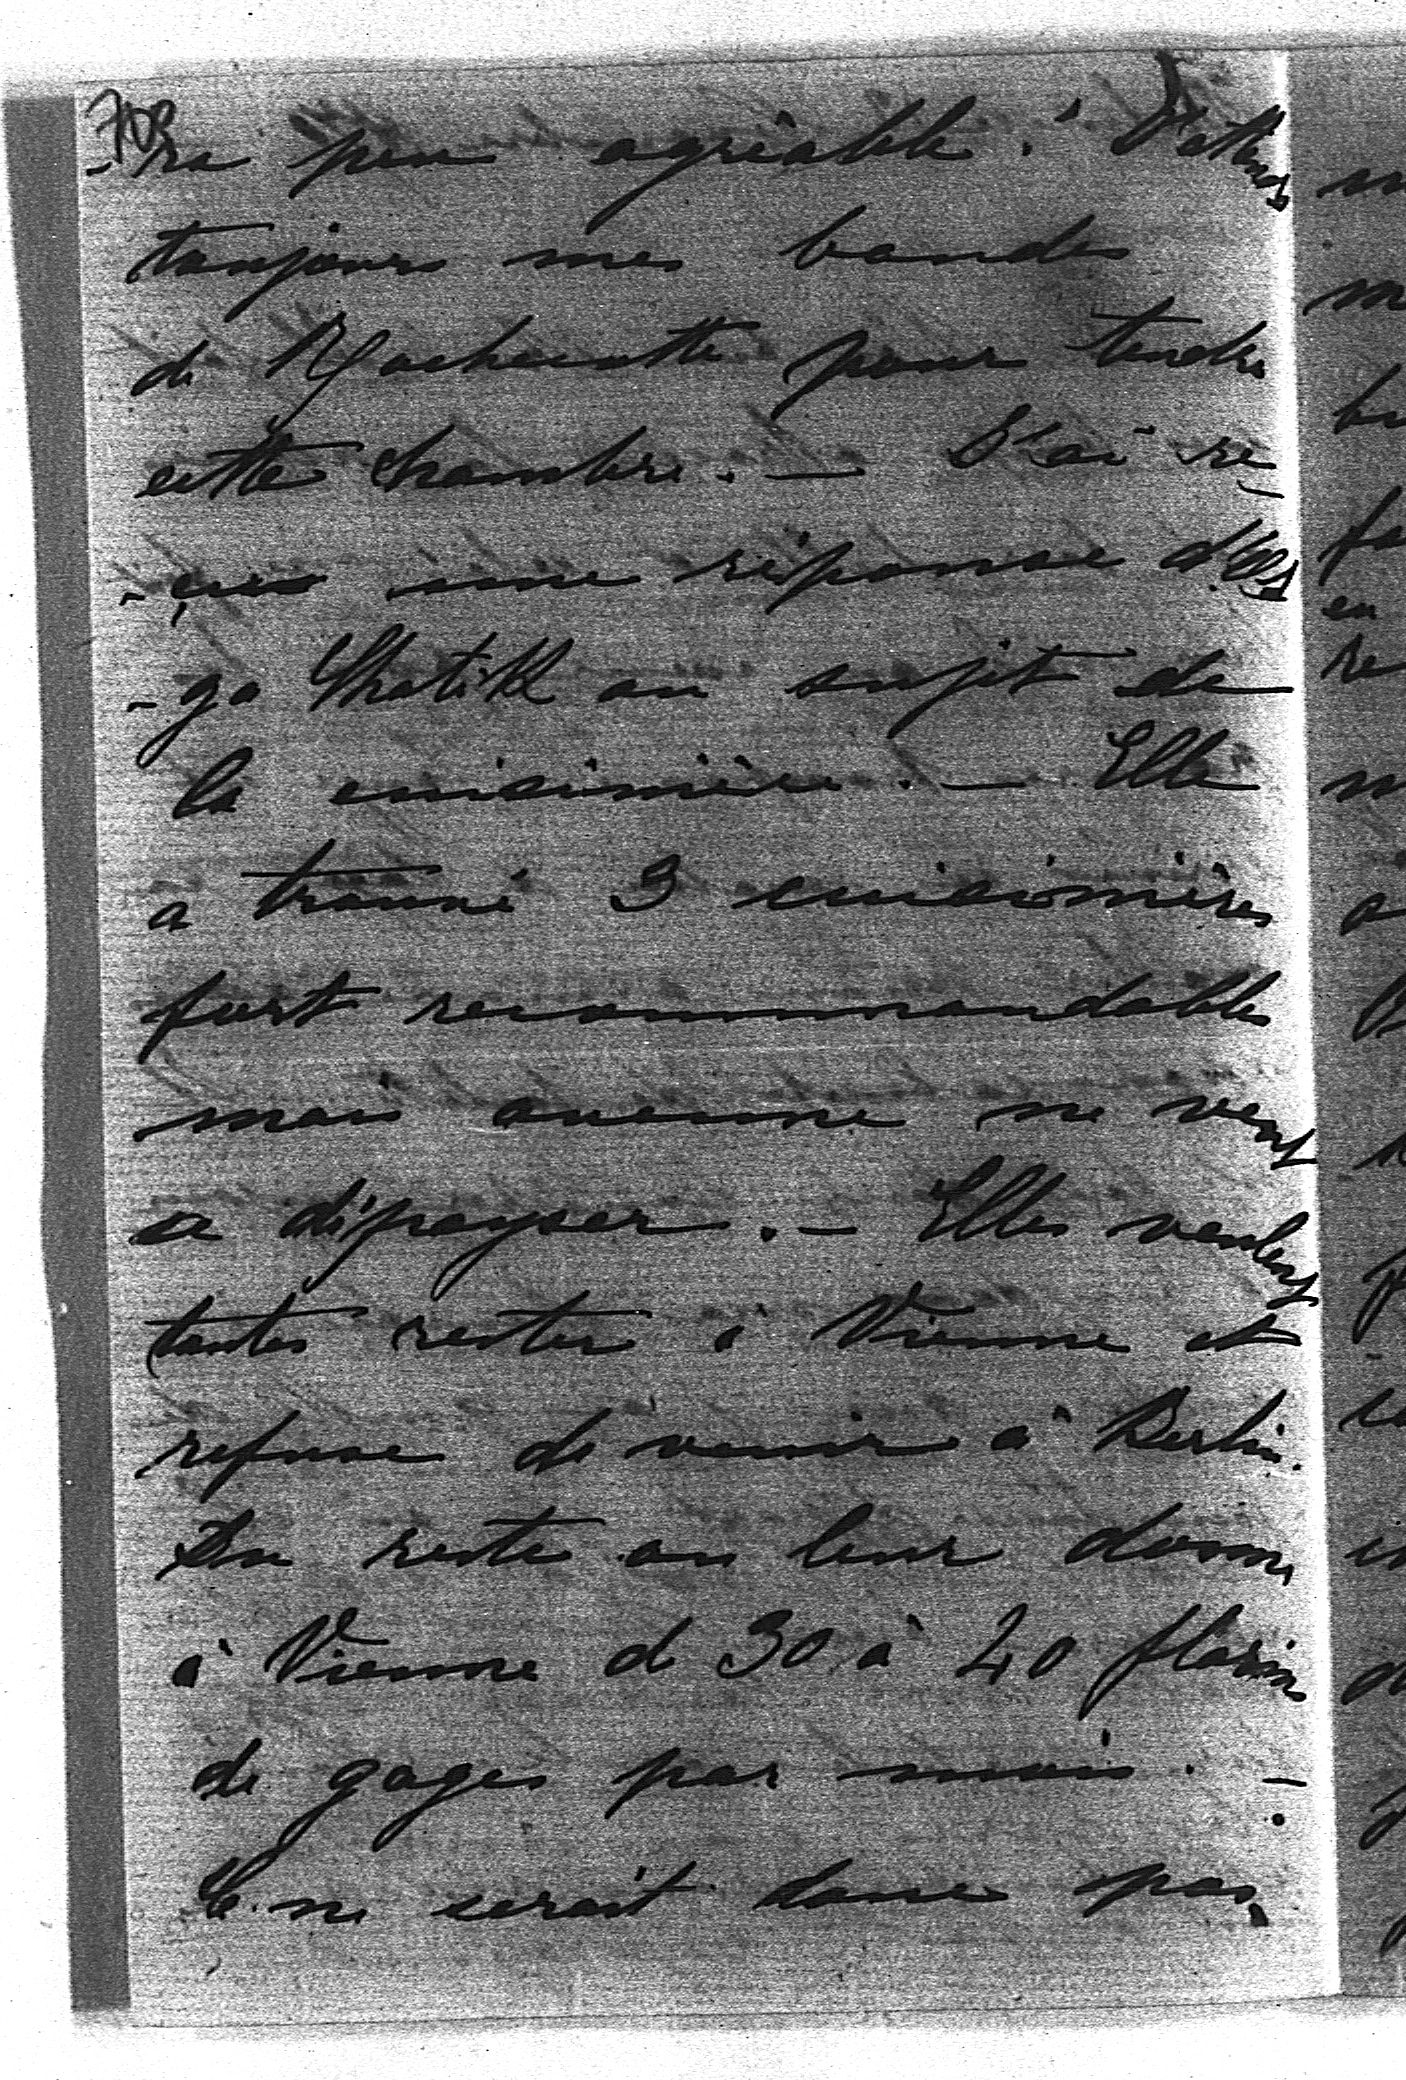 708
-ra peu agréable. J'attends
toujours mes bandes
de Rochecotte pour tendre
cette chambre. — J'ai re-
-çue une réponse d'Ol-
-ga au sujet de
la cuisinière. — Elle
a trouvé 3 cuisinières
fort recommandables
mais aucune ne veut
se dépayser. — Elles veulent
toutes rester à Vienne et
refuse de venir à Berlin.
Du reste on leur donne
à Vienne de 30 à 40 florins
de gages par mois. —
Ce ne serait donc pas